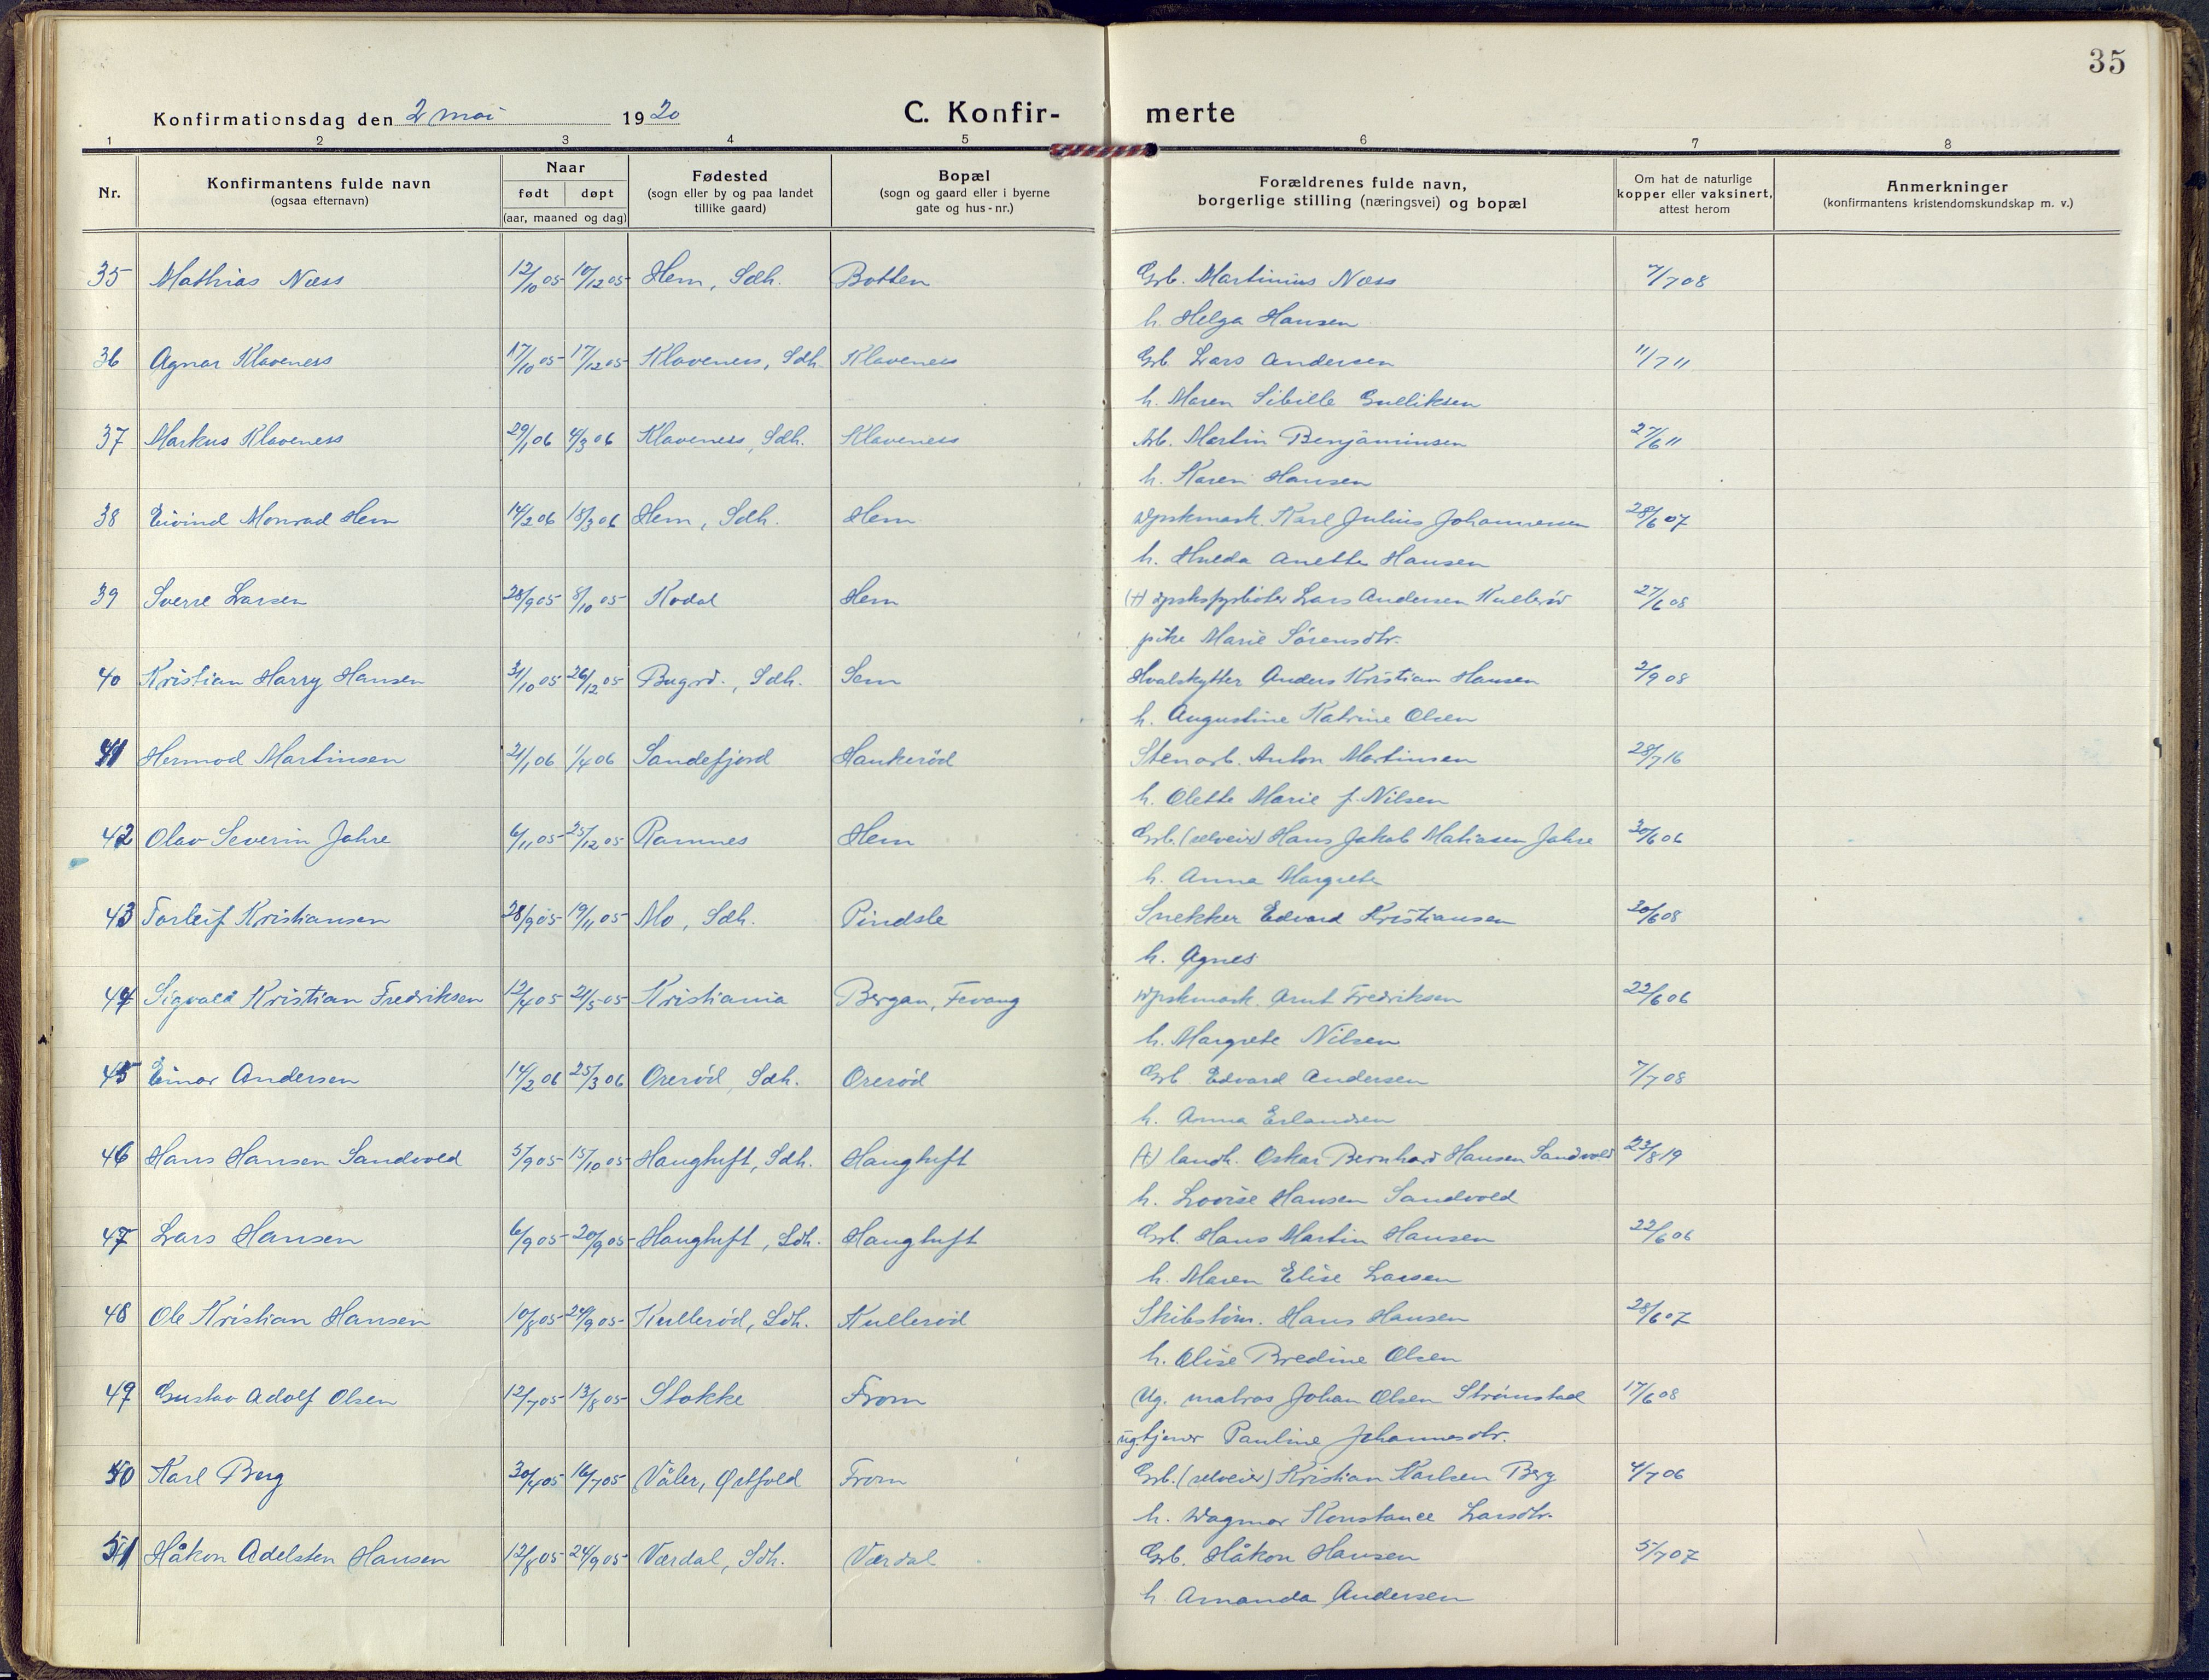 35
Konfirmationsdag den 2 mai 1920
C. Konfir-merte
1 2 3 4 5 6 7 8
Nr.
Konfirmantens fulde navn
(ogsaa efternavn)
Naar
født døpt
(aar, maaned og dag)
Fødested
(sogn eller by og paa landet
tillike gaard)
Bopæl
(sogn og gaard eller i byerne
gate og hus-nr.)
Forældrenes fulde navn,
borgerlige stilling (næringsvei) og bopæl
Om hat de naturlige
kopper eller vaksinert,
attest herom
Anmerkninger
(konfirmantens kristendomskundskap m. v.)
35 Mathias Næss 12/10 05 10/12 05 Hem, Sdh. Botten Grb. Martinius Næss 7/7 08
h. Helga Hansen
36 Agnar Klaveness 17/10 05 17/12 05 Klaveness, Sdh. Klaveness Grb. Lars Andersen 11/7 11
h. Maren Sibille Gulliksen
37 Markus Klaveness 29/1 06 4/3 06 Klaveness, Sdh. Klaveness Arb. Martin Benjaminsen 27/6 11
h. Karen Hansen
38 Eivind Monrad Hem 14/2 06 18/3 06 Hem, Sdh. Hem Karl Julius Johannessen 28/6 07
h. Hulda Anette Hansen
39 Sverre Larsen 28/9 05 8/10 05 Kodal Hem (+) Lars Andersen Kullerød 27/6 08
pike Marie Sørensdtr.
40 Kristian Harry Hansen 31/10 05 26/12 05 Bugrd., Sdh. Sem Hvalskytter Anders Kristian Hansen 2/9 08
h. Augustine Katrine Olsen
41 Hermod Martinsen 21/1 06 1/4 06 Sandefjord Haukerød Stenarb. Anton Martinsen 28/7 16
h. Olette Marie f. Nilsen
42 Olav Severin Jahre 6/11 05 25/12 05 Ramnes Hem Grb. (selveier) Hans Jakob Matiasen Jahre 30/6 06
h. Anna Margrete
43 Torleif Kristiansen 28/9 05 19/11 05 Mo, Sdh. Pindsle Snekker Edvard Kristiansen 30/6 08
h. Agnes
44 Sigvald Kristian Fredriksen 12/4 05 21/5 05 Kristiania Bergan, Fevang Arnt Fredriksen 22/6 06
h. Margrete Nilsen
45 Einar Andersen 14/2 06 25/3 06 Orerød, Sdh. Orerød Grb. Edvard Andersen 7/7 08
h. Anna Erlandsen
46 Hans Hansen Sandvold 5/9 05 15/10 05 Haugtuft, Sdh. Haugtuft (+) landh. Oskar Bernhard Hansen Sandvold 23/8 19
h. Lovise Hansen Sandvold
47 Lars Hansen 6/9 05 20/9 05 Haugtuft, Sdh. Haugtuft Grb. Hans Martin Hansen 22/6 06
h. Maren Elise Larsen
48 Ole Kristian Hansen 10/8 05 24/9 05 Kullerød, Sdh. Kullerød Skibstøm. Hans Hansen 28/6 07
h. Olise Bredine Olsen
49 Gustav Adolf Olsen 12/7 05 13/8 05 Stokke From Ug. matros Johan Olsen Strømstad 17/6 08
ug. tjener Pauline Johannesdtr.
50 Karl Berg 30/4 05 16/7 05 Våler, Østfold From Grb. (selveier) Kristian Karlsen Berg 4/7 06
h. Dagmar Konstance Larsdtr.
51 Håkon Adelsten Hansen 12/8 05 24/9 05 Værdal, Sdh. Værdal Grb. Håkon Hansen 5/7 07
h. Amanda Andersen